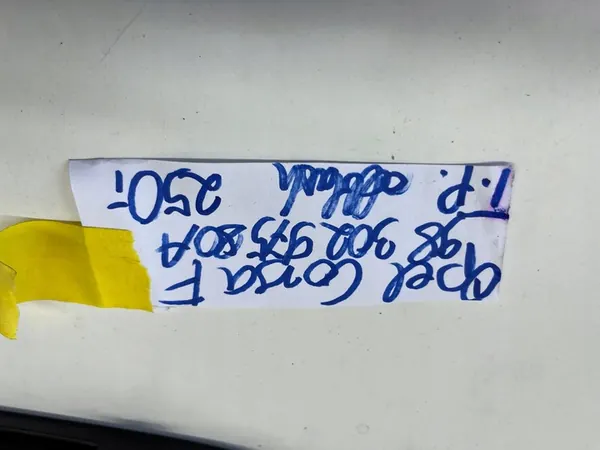 Opel Corsa F
98 302 975 80A
I.P. 250,-